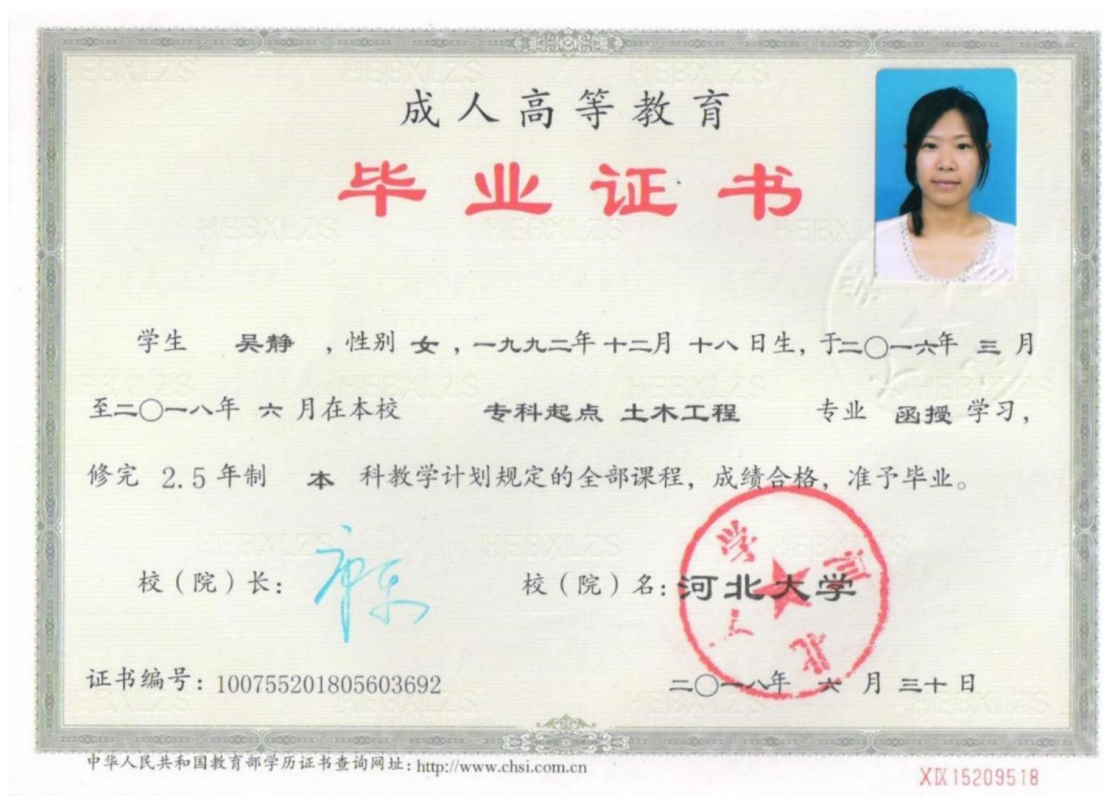 成人高等教育
毕业证书
学生 吴静 ，性别 女，一九九二年十二月十八日生，于二〇一六年 三 月
至二〇一八年 六 月在本校 专科起点 土木工程 专业 函授 学习，
修完 2.5 年制 本 科教学计划规定的全部课程，成绩合格，准予毕业。
校（院）长：
校（院）名：河北大学
河北大学
证书编号：100755201805603692
二〇一八年 六 月 三十 日
中华人民共和国教育部学历证书查询网址：http://www.chsi.com.cn
XIX 15209518